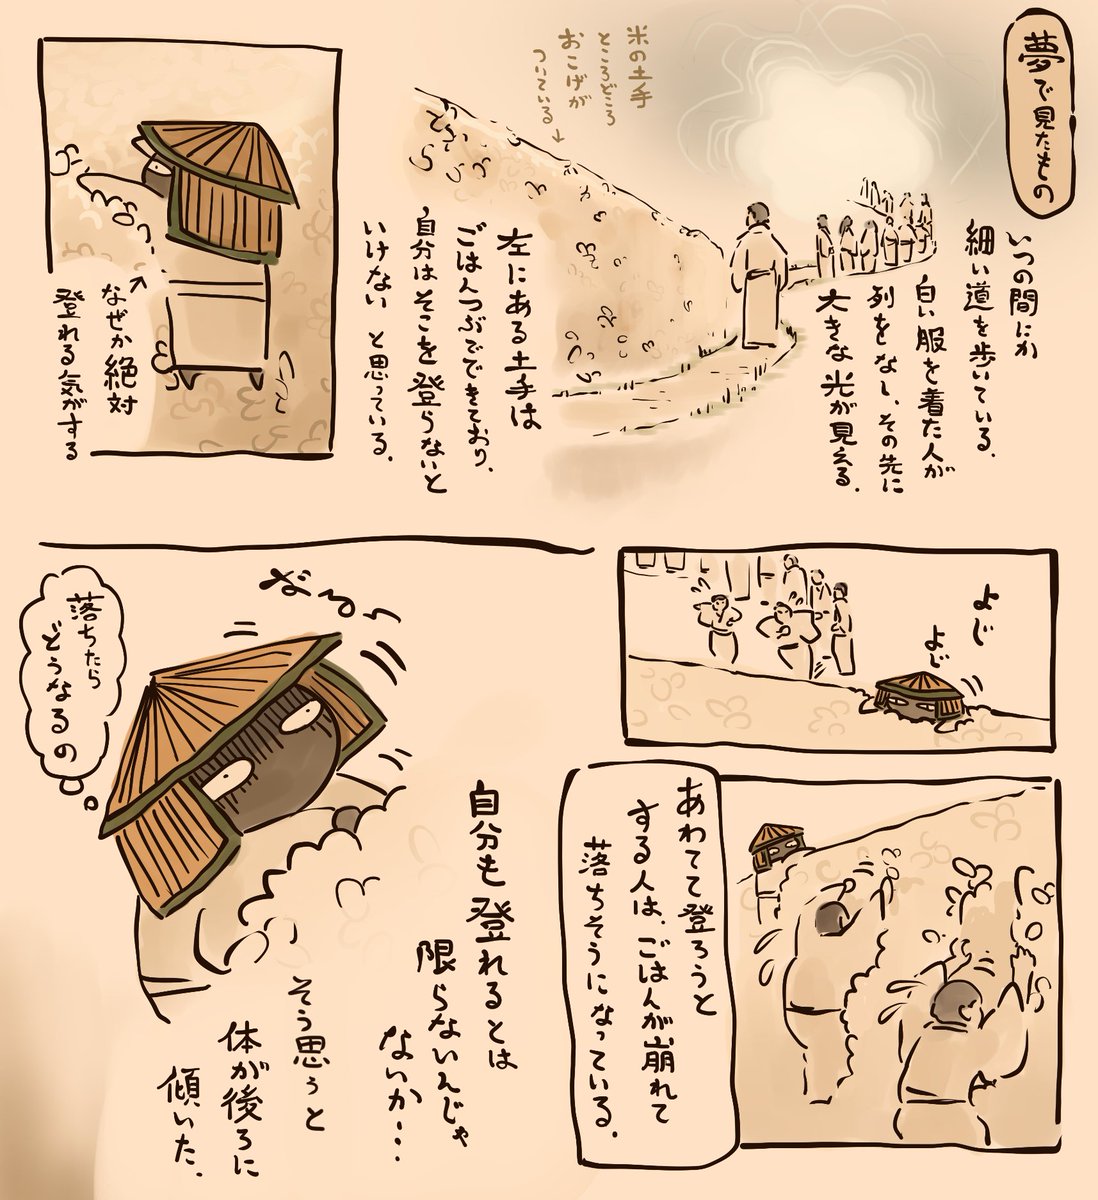 夢で見たもの
いつの間にか
細い道を歩いている。
白い服を着た人が
列をなし、その先に
大きな光が見える。
米の土手
ところどころ
おこげが
ついている
左にある土手は
ごはんつぶでできており、
自分はそこを登らないと
いけない と思っている。
なぜか絶対
登れる気がする
よじ
よじ
あわてて登ろうと
する人は、ごはんが崩れて
落ちそうになっている。
自分も登れるとは
限らないんじゃ
ないか…
そう思うと
体が後ろに
傾いた。
落ちたら
どうなるの